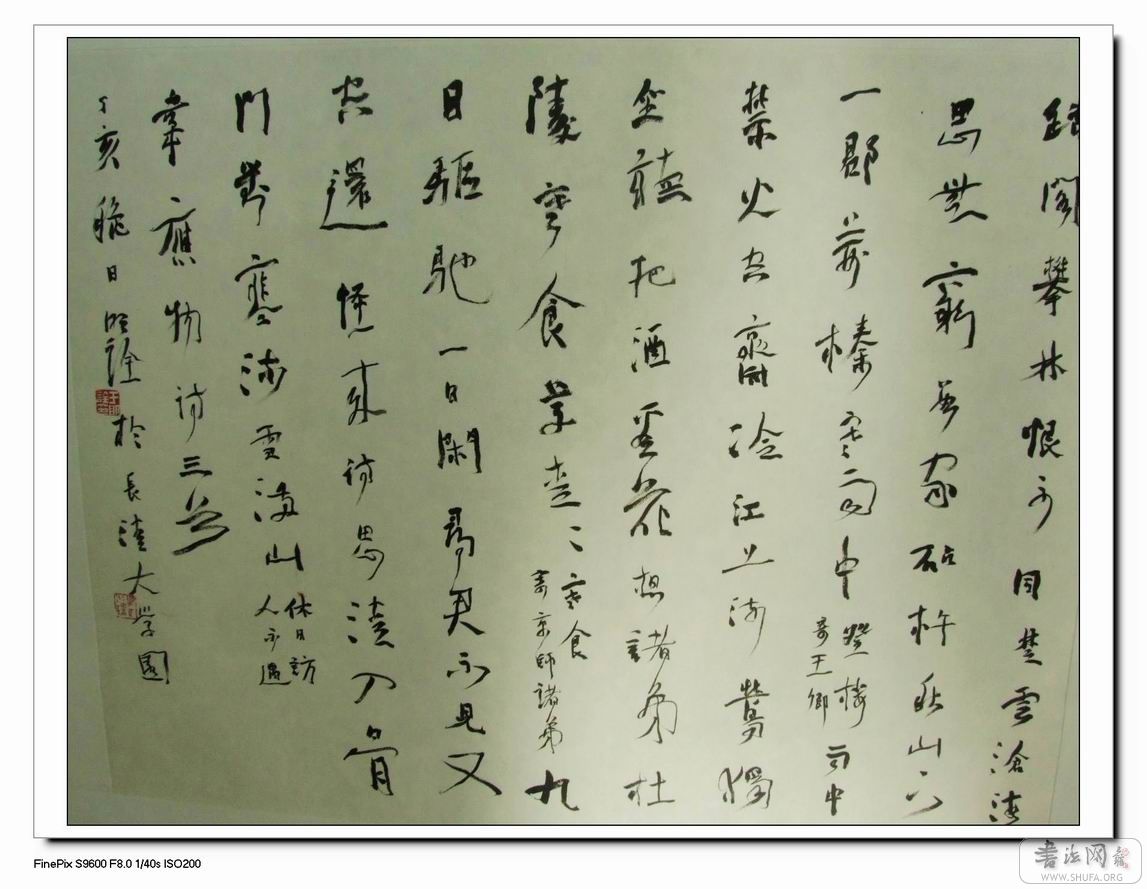 踏閣攀林恨不同楚雲滄海
思無窮數家砧杵秋山下
一郡荊榛寒雨中
登樓
寄王卿
雨中
禁火空齋冷江上流鶯獨
坐聽把酒看花想諸弟杜
陵寒食草青〻
寒食
寄京師諸弟
九
日驅馳一日閑尋君不見又
空還怪來詩思清入骨
門對寒流雪滿山
休日訪
人不遇
韋應物詩三首
丁亥臘日明詮於長清大学園
FinePix S9600 F8.0 1/40s ISO200
書法网
WWW.SHUFA.ORG